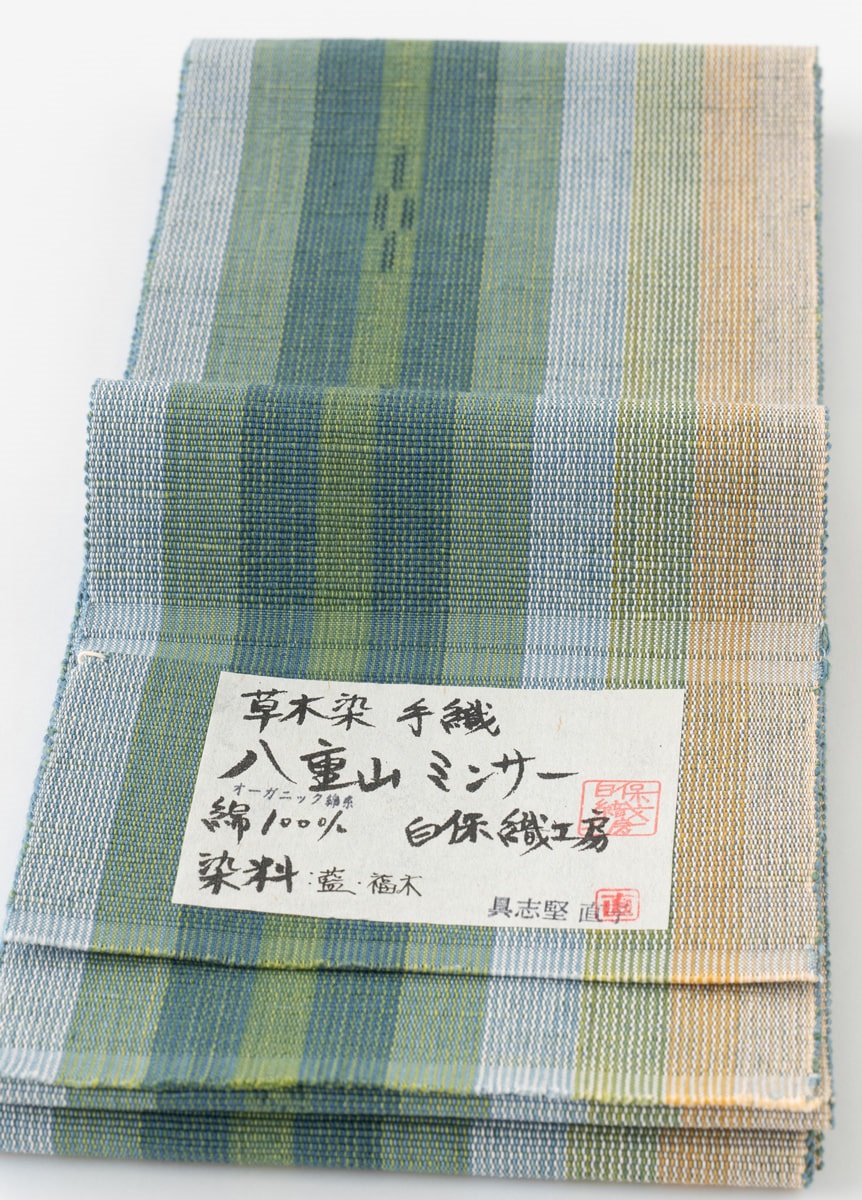 草木染 手織
八重山 ミンサー
オーガニック綿糸
綿100% 白保 織工房
染料:藍・福木
具志堅 直子